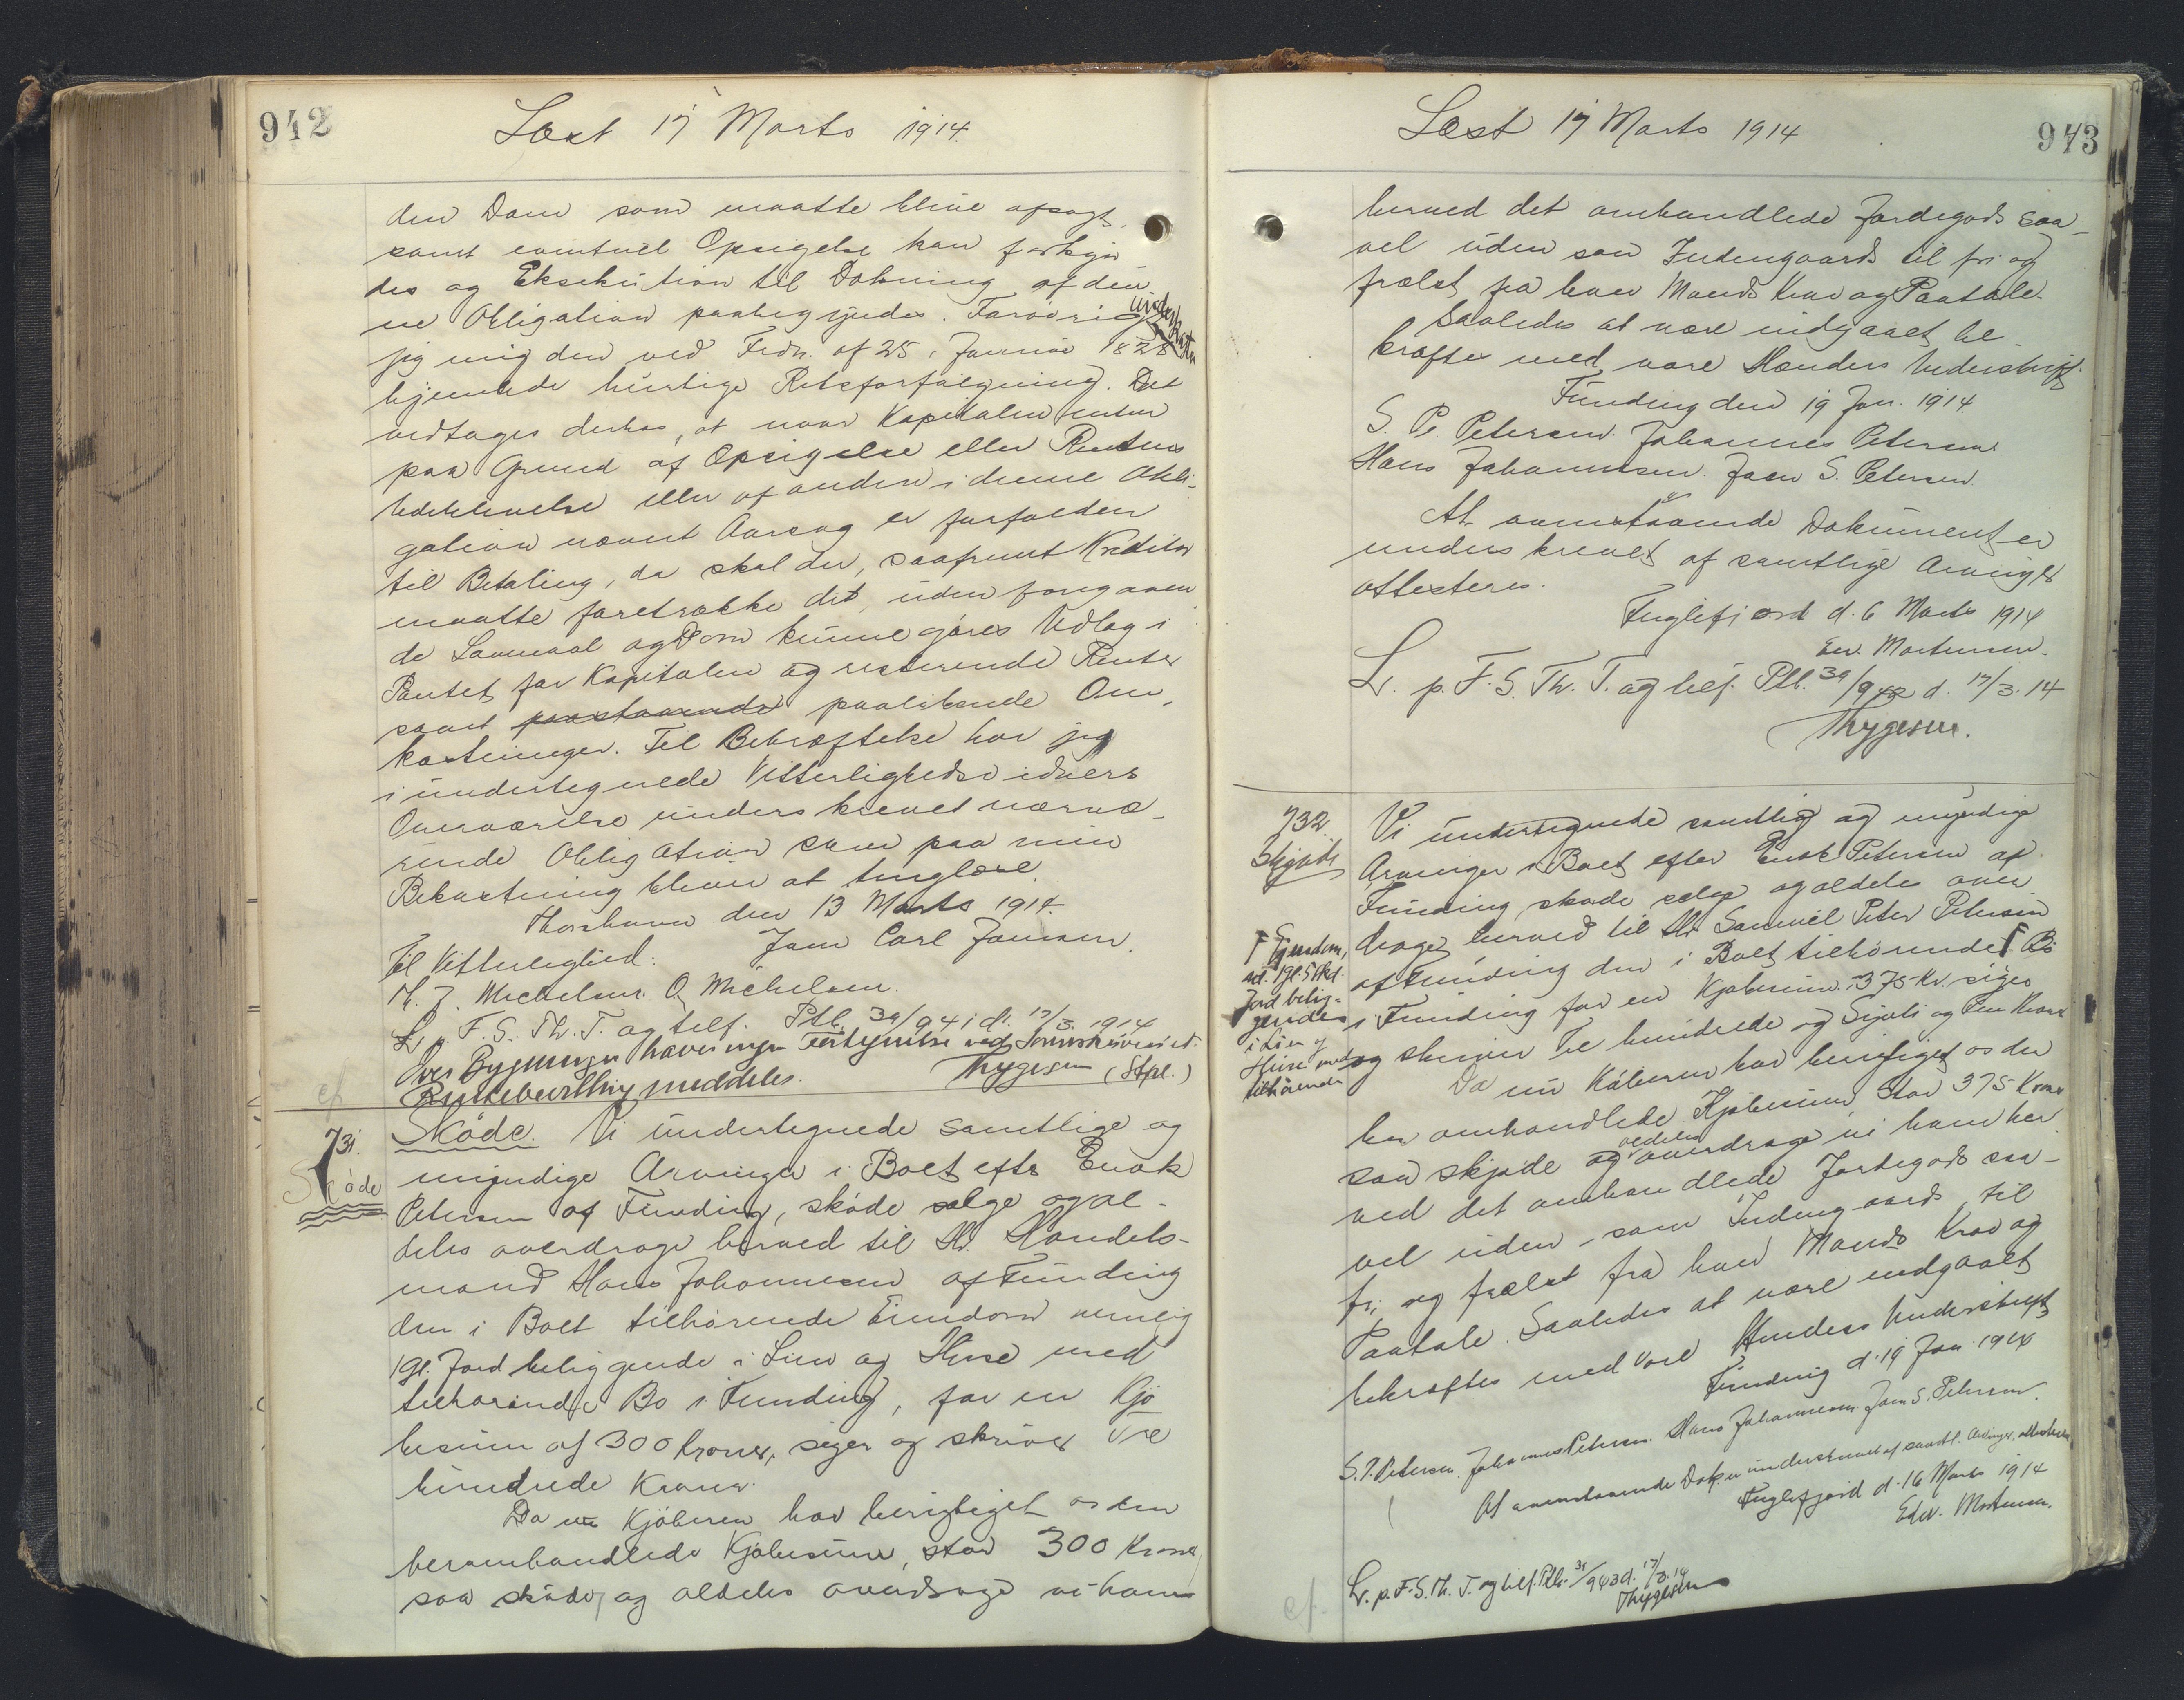 942
Læst 17 Marts 1914.
den Dom som maatte blive afsagt,
samt eventuel Opsigelse kan forkyn
des og Eksekution til Dækning af den
ne Obligation paabegyndes. Forøvrig underkaster
jeg mig den ved Frdn. af 25 Januar 1828
hjemlede hurtige Retsforfølgning. Det
vedtages derhos, at naar Kapitalen enten
paa Grund af Opsigelse eller Rentens
Udeblivelse eller af anden i denne Obli-
gation nævnt Aarsag er forfalden
til Betaling, da skal der, saafremt Kreditor
maatte foretrække det, uden foregaaen
de Lovmaal og Dom kunne gøres Udlæg i
Pantet for Kapitalen og resterende Renter
samt paastaaende paaløbende Om-
kostninger. Til Bekræftelse har jeg
i undertegnede Vitterlighedsvidners
Overværelse underskrevet nærvæ-
rende Obligation som paa min
Bekostning bliver at tinglæse.
Thorshavn den 13 Marts 1914.
Til Vitterlighed: Joen Carl Joensen.
M. J. Michelsen. O. Michelsen.
L. p. F. S. Th. T. og tilf. Ptb. 39/941 d. 17/3. 1914
Over Bygningen haves ingen Værtynitsi ved
Rentebevilling meddeles. Thygesen (Stpl.)
cf
731.
Sköde
Sköde. Vi undertegnede samtlige og
myndige Arvinger i Boet efter Enok
Petersen af Funding, sköde sælge og al-
deles overdrage herved til Hr. Handels-
mand Hans Johannesen af Funding
den i Boet tilhørende Eiendom nemlig
1 Gl. Jord beliggende i Lien og Huse med
tilhørende Bø i Funding, for en Kjø
besum af 300 Kroner, siger og skriver Tre
hundrede Kroner.
Da nu Kjøberen har berigtiget os den
heromhandlede Kjøbesum, stor 300 Kroner
saa sköde, og aldeles overdrage vi ham
943
Læst 17 Marts 1914
herved det omhandlede Jordegods saa-
vel uden som Indengaards til fri og
frælst fra hver Mands Krav og Paatale.
Saaledes at være indgaaet be-
kræftes med vore Hænders Underskrift.
Funding den 19 Jan. 1914
S. P. Petersen. Johannes Petersen
Hans Johannesen. Joen S. Petersen.
At ovenstaaende Dokument er
underskrevet af samtlige Arvinger
attesteres.
Fuglefjord d. 6 Marts 1914
Edv. Mortensen.
L. p. F. S. Th. T. og tilf. Ptb. 39/942 d. 17/3. 14
Thygesen.
732
Skjøde
Vi undertegnede samtlig og myndige
Arvinger i Boet efter Enok Petersen af
Funding skøde sælge og aldeles over
drage herved til Hr Samuel Peter Petersen
af Funding den i Boet tilhørende Γ Bø
i Funding for en Kjøbesum 375 Kr. siger
og skriver Tre hundrede og Sjuti og Fem Kroner
Γ Ejendom,
nl. 1 Gl. 5 Skd.
Jord belig-
gende
i Lien og
Huse med
tilhørende
Da nu Køberen har berigtiget os den
her omhandlede Kjøbesum, stor 375 Kroner
saa skjøde og aldeles overdrage vi ham her
ved det omhandlede Jordegods saa-
vel uden- som Indengaards til
fri og frælst fra hver Mands Krav og
Paatale. Saaledes at være indgaaet
bekræftes med vore Hænders Underskrift,
Funding d. 19 Jan 1914
S. P. Petersen. Johannes Petersen. Hans Johannesen. Joen S. Petersen.
At ovenstaaende Dok. er underskrevet af samtl. Arvinger, attesteres
Fuglefjord d. 16 Marts 1914
Edv. Mortensen.
L. p. F. S. Th. T. og tilf. Ptb. 39/943 d. 17/3. 14
Thygesen
cf.